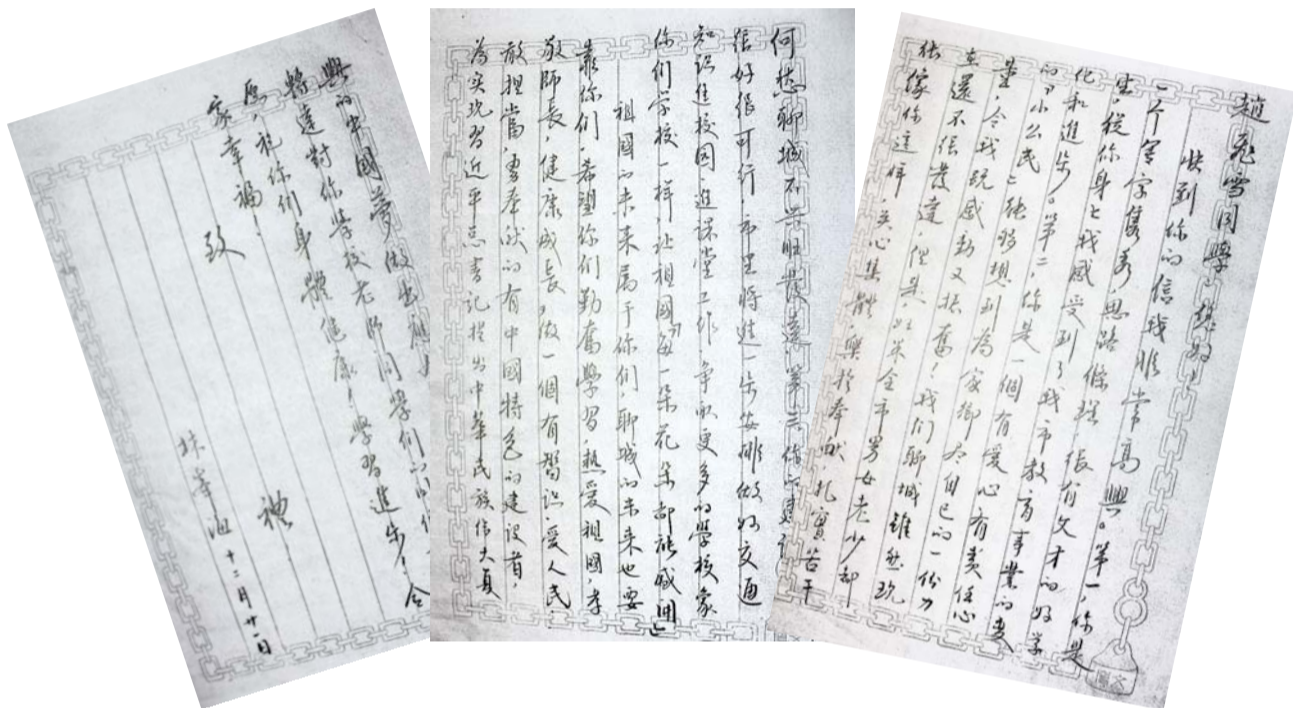 趙飛雪同學:您好!
收到你的信我非常高興。第一,你是
一个字隽秀,思路條理,很有文才的好学
生,從你身上我感受到了我市教育事業的变
化和進步。第二,你是一個有爱心有责任心
的"小公民",能够想到為家鄉尽自己的一份力
量,令我既感動又振奮!我们聊城雖然现
在還不很發達,但是,如果全市男女老少都
能像你這样,关心集體,樂於奉献,扎實苦干
何愁聊城不兴旺發達。第三,你的建议
很好很可行,市里将進一步安排做好交通
知识進校园進课堂工作,争取更多的学校象
你们学校一样,让祖国的每一朵花朵都能盛開。
祖國的未来属于你们,聊城的未来也要
靠你们,希望你们勤奮學习,熱爱祖國,孝
敬師長,健康成長,做一個有智识,爱人民
敢担當,勇奉献的有中國特色的建设者,
為实现習近平总書记提出中華民族伟大复
興的中國夢做出應
轉達對你学校老师同学们的
愿,祝你们身體健康!學習進步!全
家幸福!
致
禮
林峰海 十二月廿一日